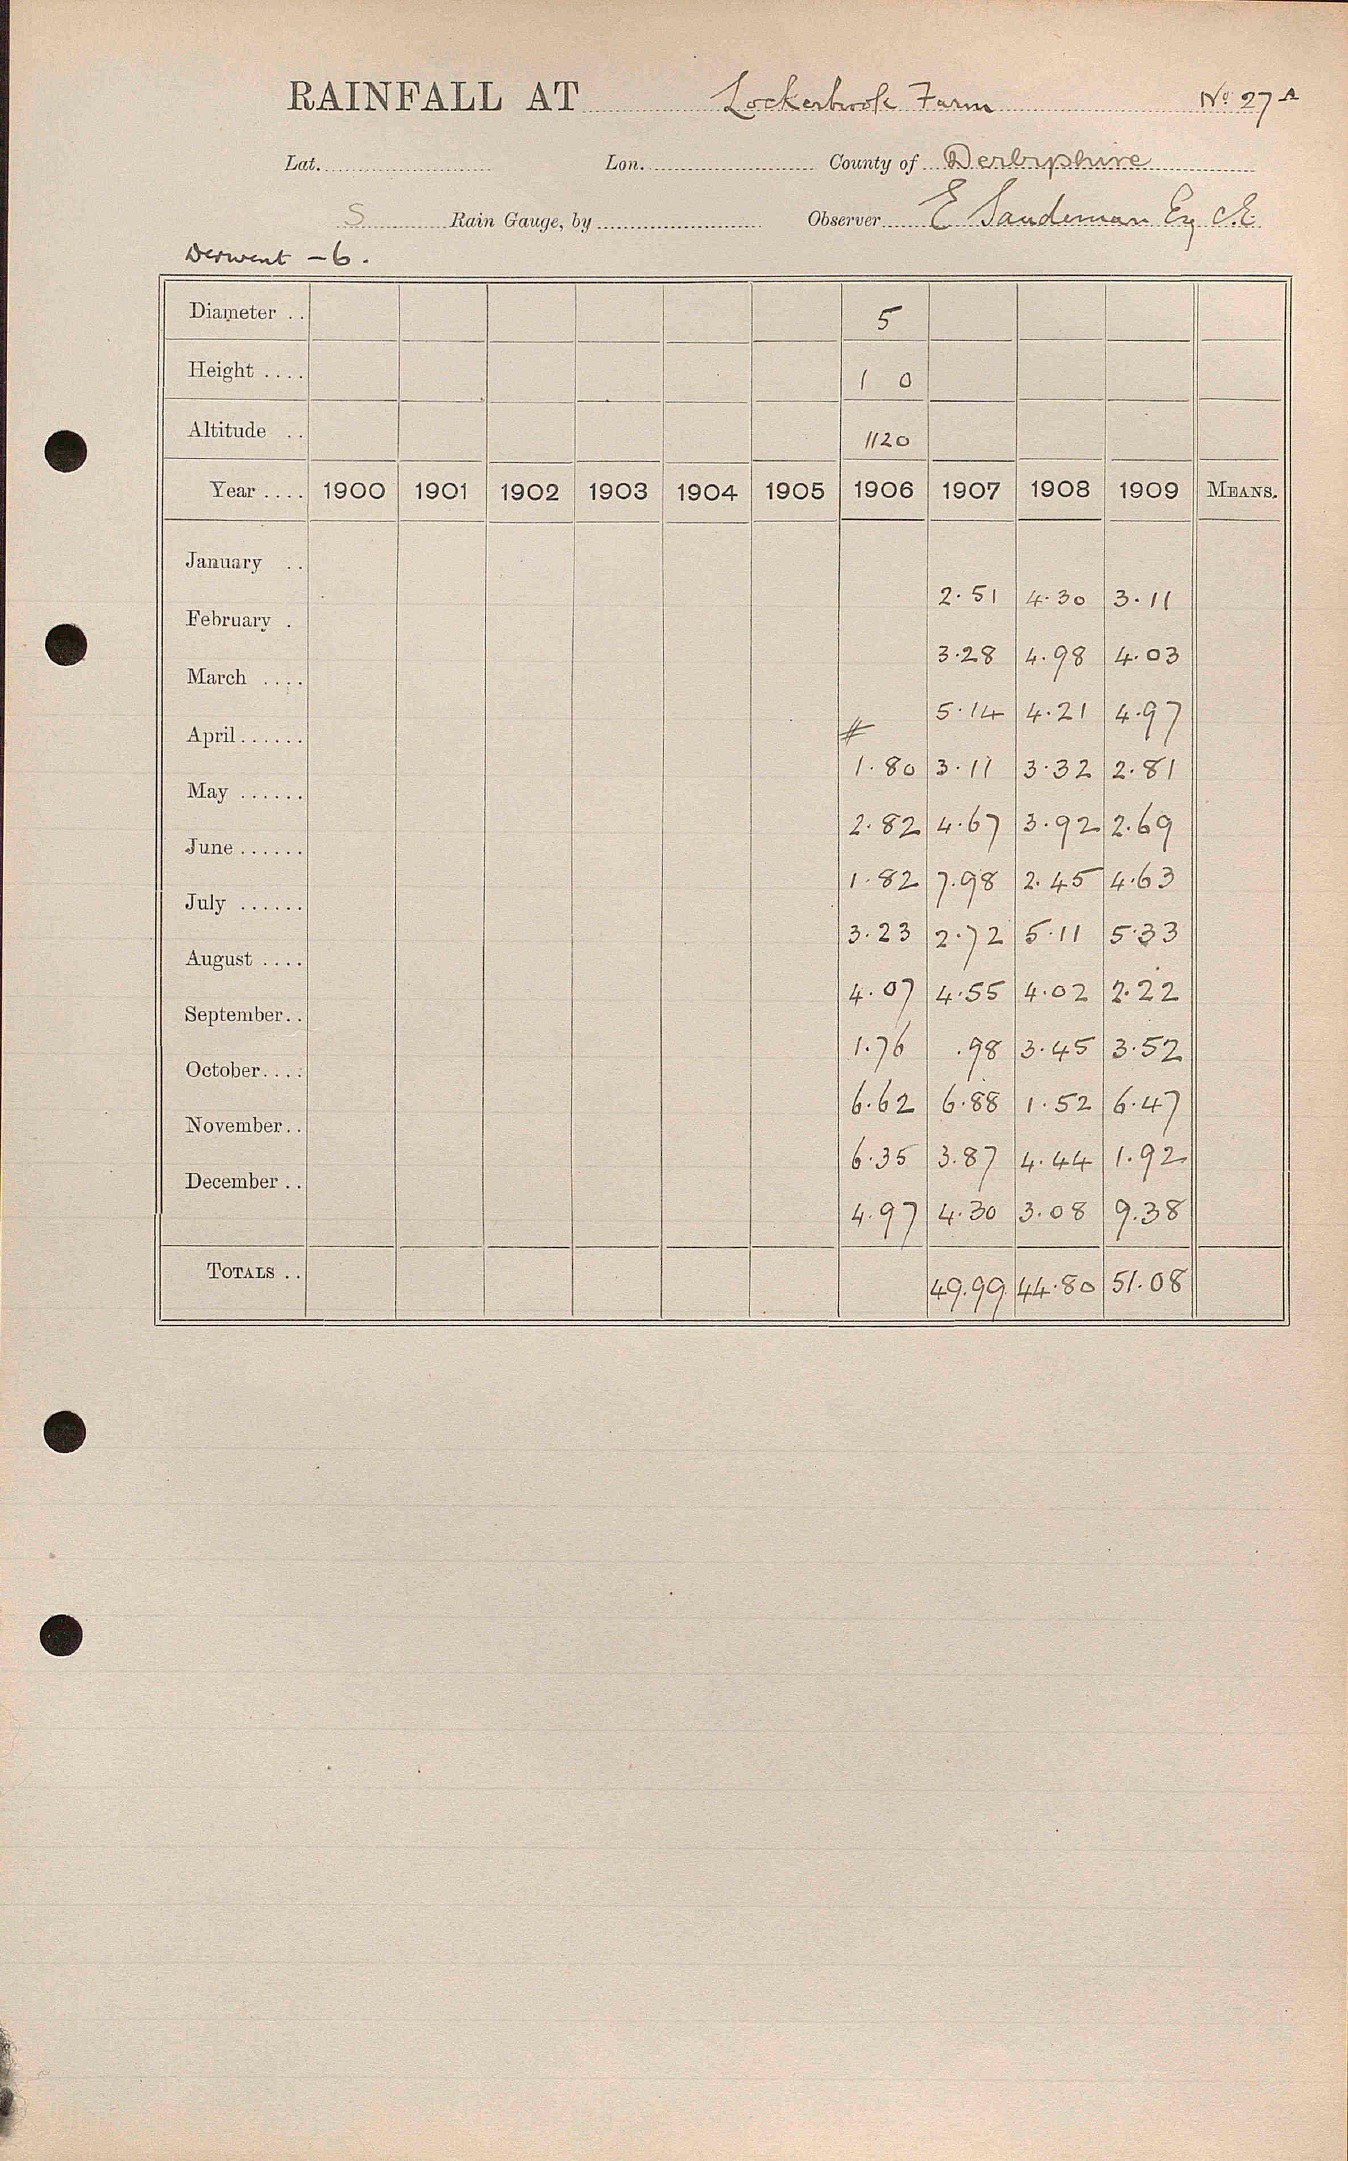 RAINFALL AT Lockerbrook Farm No. 27A
Lat. Lon. County of Derbyshire
S Rain Gauge, by Observer E Sandeman Esq C.E.
Derwent - 6.
Diameter .. 5
Height .... 1 0
Altitude .. 1120
Year .... 1900 1901 1902 1903 1904 1905 1906 1907 1908 1909 MEANS.
January .. 2.51 4.30 3.11
February . 3.28 4.98 4.03
March .... 5.14 4.21 4.97
April...... # 1.80 3.11 3.32 2.81
May ...... 2.82 4.67 3.92 2.69
June ...... 1.82 7.98 2.45 4.63
July ...... 3.23 2.72 5.11 5.33
August .... 4.07 4.55 4.02 2.22
September.. 1.76 .98 3.45 3.52
October.... 6.62 6.88 1.52 6.47
November.. 6.35 3.87 4.44 1.92
December .. 4.97 4.30 3.08 9.38
TOTALS .. 49.99 44.80 51.08